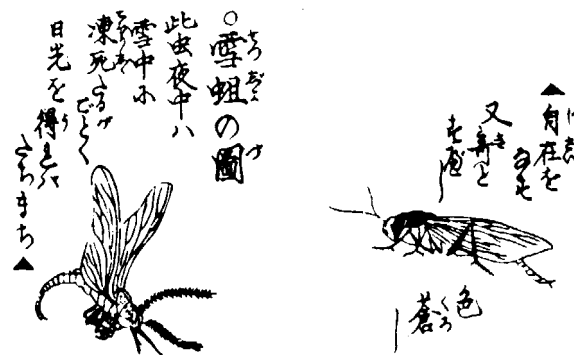 ○雪蛆の圖
此虫夜中ハ
雪中に
凍死たるが
ごとく
日光を得れバ
たちまち▲
▲自在を
なす
又奇と
すべし
色
蒼し